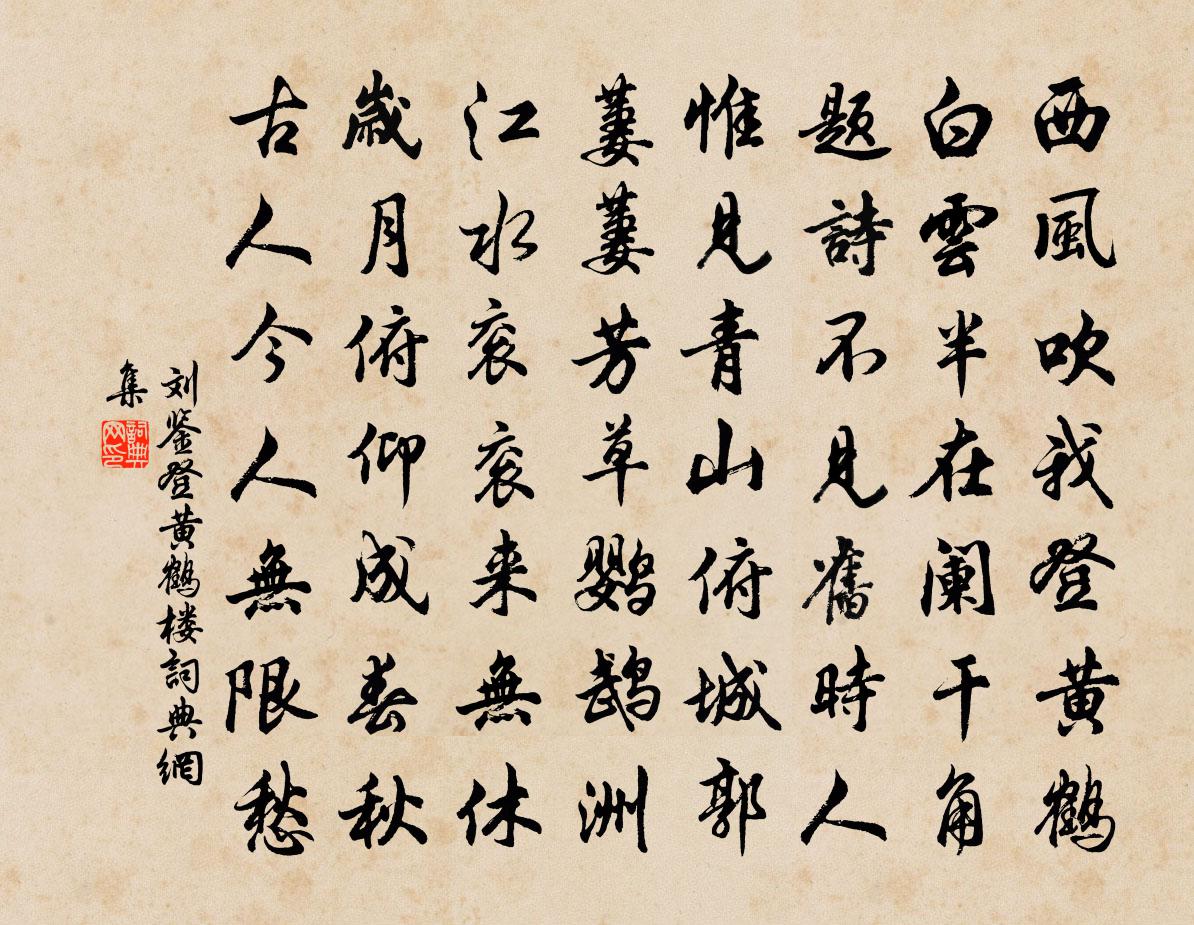 西風吹我登黄鶴
白雲半在阑干角
题詩不見舊時人
惟見青山俯城郭
萋萋芳草鹦鹉洲
江水衮衮来無休
歲月俯仰成春秋
古人今人無限愁
刘鉴登黄鶴楼詞典網
集
詞典
网印